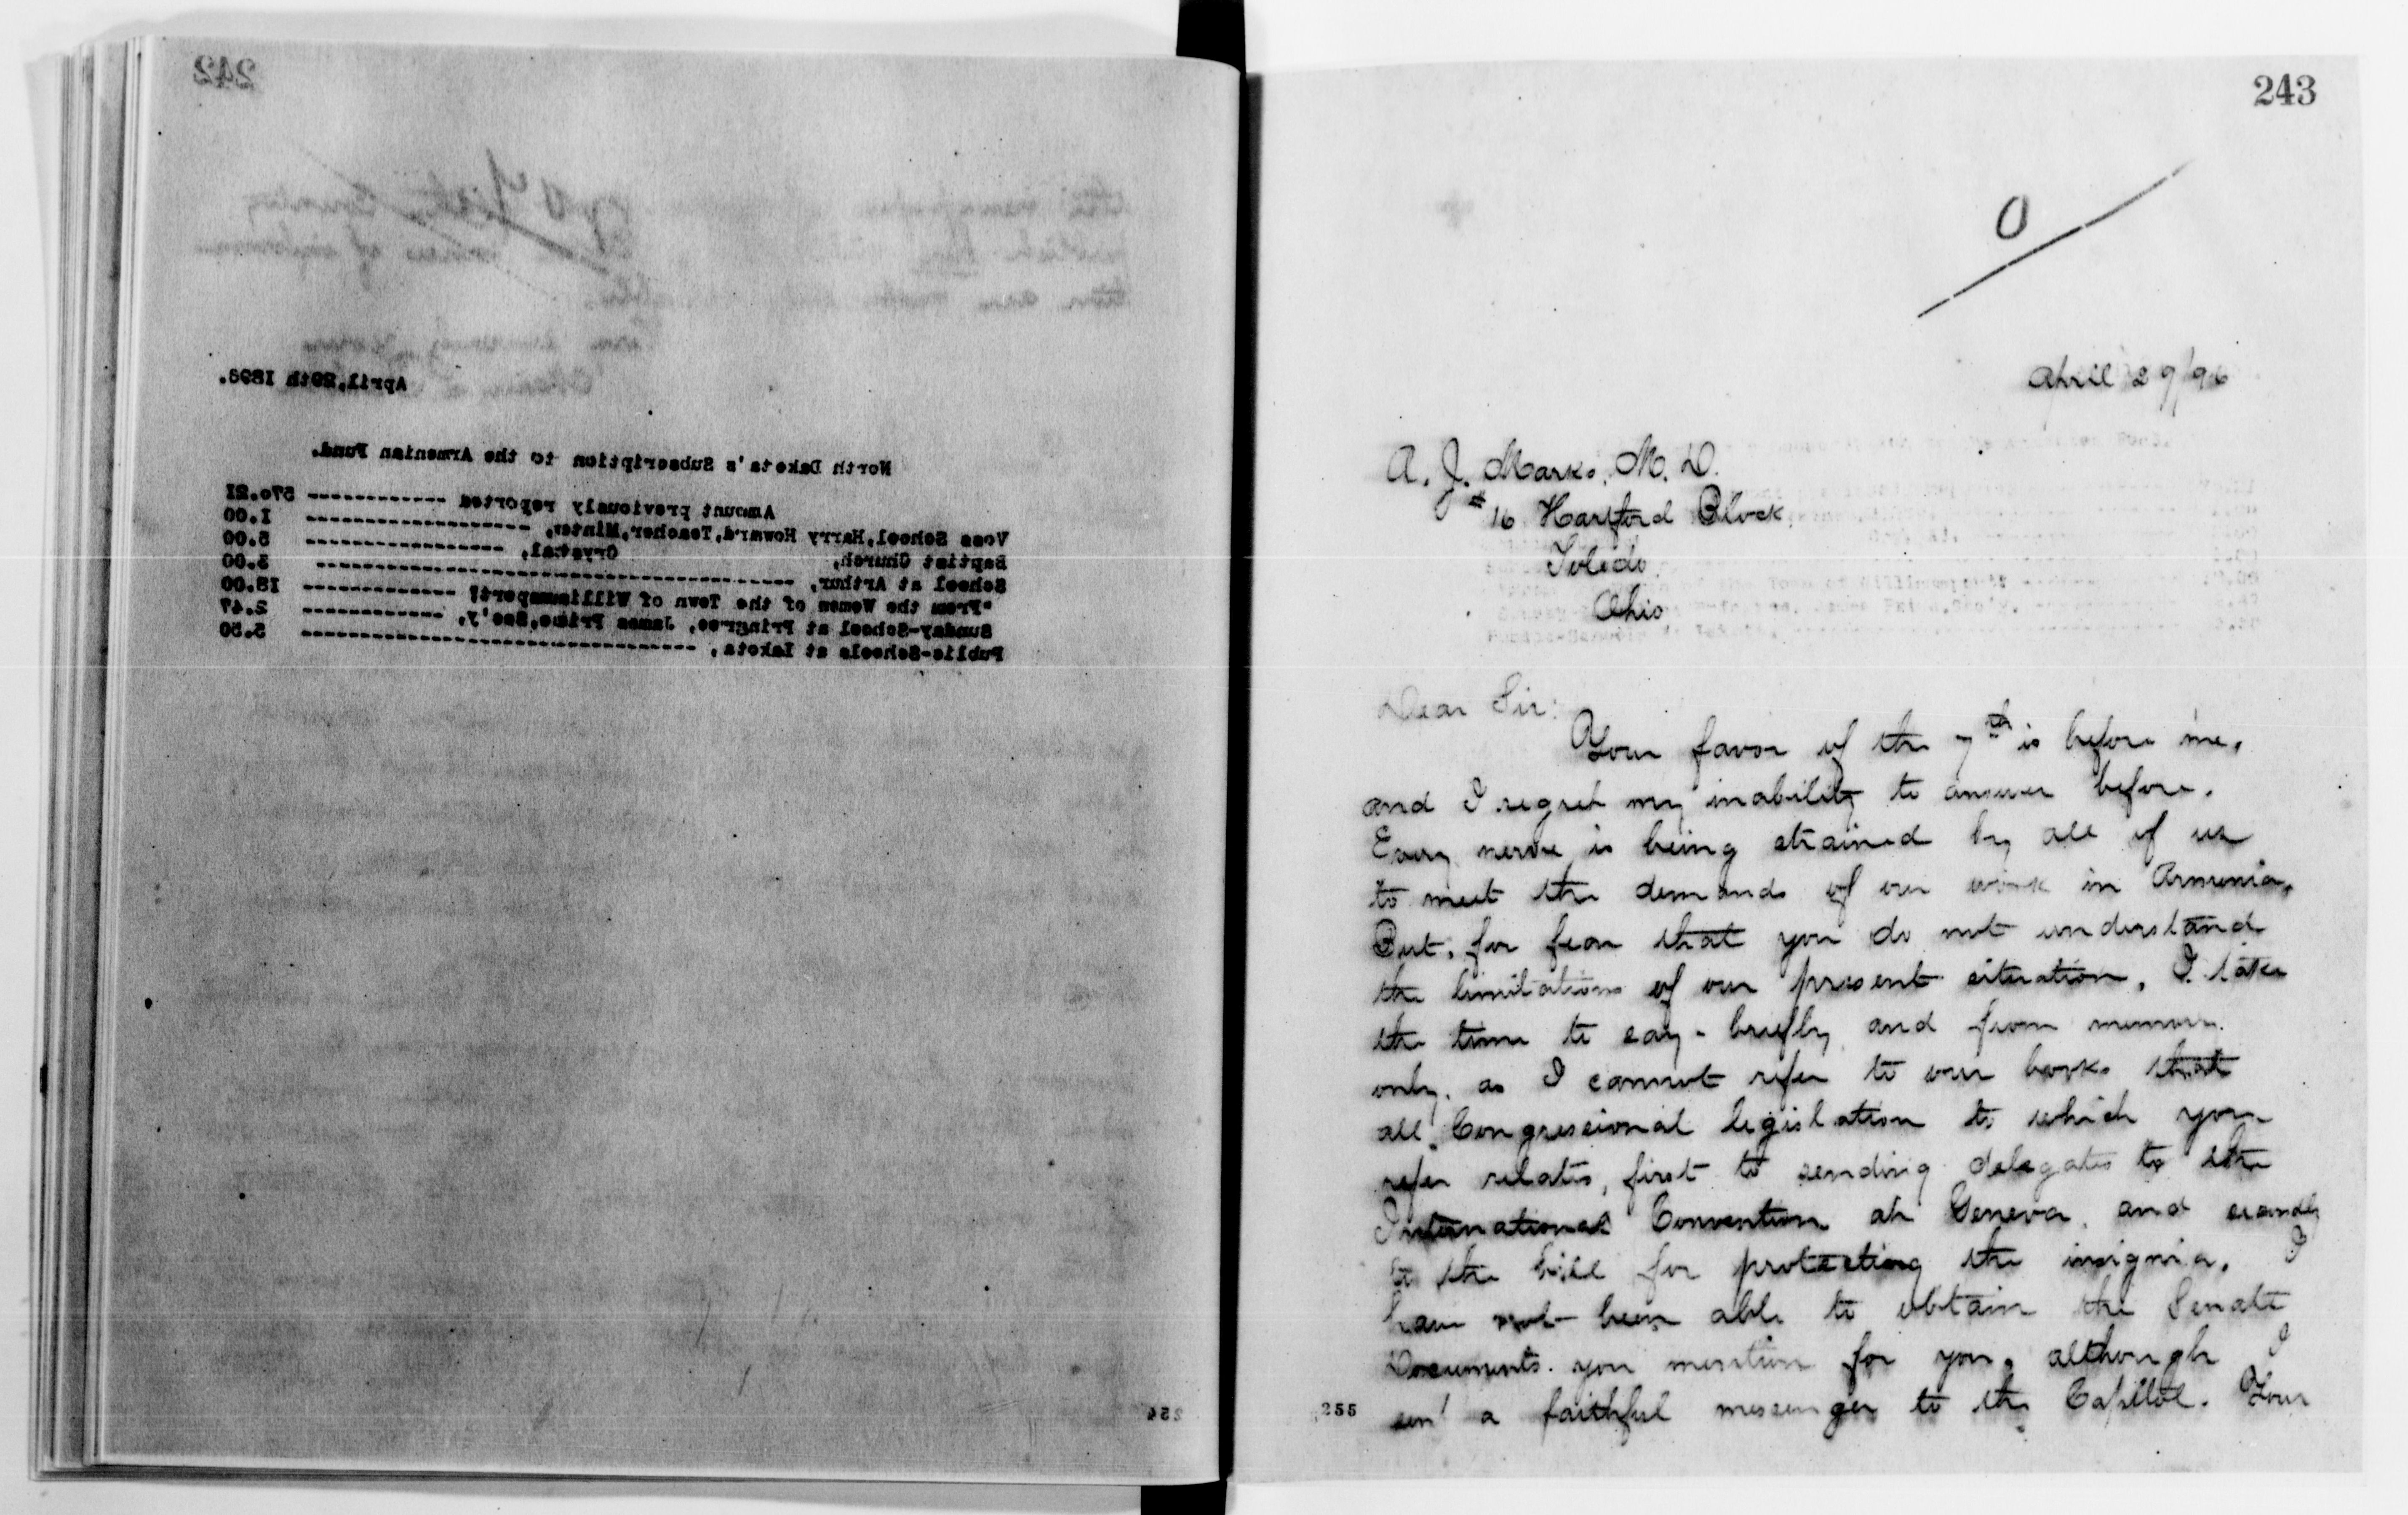 242
April,29th 1896.
North Dakota's Subscription to the Armenian Fund.
Amount previously reported ------------ 570.21
Voss School,Harry Howard,Teacher,Minter, ------------------- 1.00
Baptist Church, Crystal, ----------------- 5.00
School at Arthur, ---------------------------------------- 3.00
"From the Women of the Town of Williamsport" ------------- 18.00
Sunday-School at Pringree, James Primo,Sec'y, ------------ 2.47
Public-Schools at Lakota, --------------------------------- 5.50
254
243
0
April 29/96
A. J. Marks, M. D.
#16 Hartford Block
Toledo.
Ohio
Dear Sir:
Your favor of the 7th is before me,
and I regret my inability to answer before.
Every nerve is being strained by all of us
to meet the demands of our work in Armenia.
But, for fear that you do not understand
the limitations of our present situation, I take
the time to say - briefly and from memory
only, as I cannot refer to our books that
all Congressional legislation to which you
refer relates, first to sending delegates to the
International Convention at Geneva, and secondly
to the bill for protecting the insignia. I
have not been able to obtain the Senate
Documents you mention for you, although I
sent a faithful messenger to the Capitol. Your
255